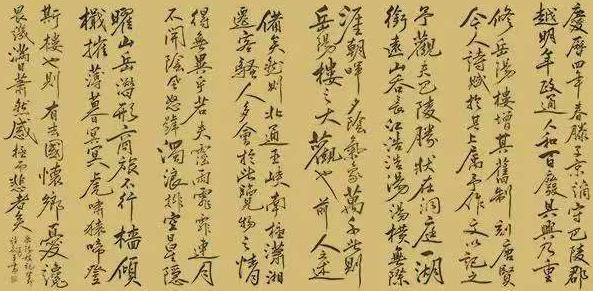 慶曆四年春滕子京謫守巴陵郡
越明年政通人和百廢具興乃重
修岳陽樓增其舊制刻唐賢
今人詩賦於其上屬予作文以記之
予觀夫巴陵勝狀在洞庭一湖
銜遠山吞長江浩浩湯湯橫無際
涯朝暉夕陰氣象萬千此則
岳陽樓之大觀也前人述
備矣然則北通巫峽南極瀟湘
遷客騷人多會於此覽物之情
得無異乎若夫霪雨霏霏連月
不開陰風怒號濁浪排空日星隱
曜山岳潛形商旅不行檣傾
楫摧薄暮冥冥虎嘯猿啼登
斯樓也則有去國懷鄉憂讒
畏譏滿目蕭然感極而悲者矣